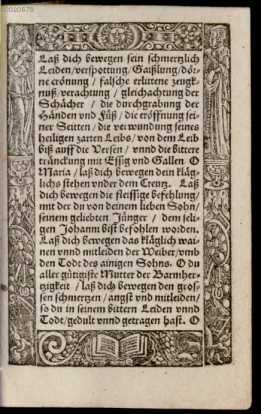 Laß dich bewegen sein schmertzlich
Leiden/verspottung/Gaißlung/dör-
ne crönung / falsche erlittene zeugk-
nuß/verachtung / gleichachtung der
Schächer / die durchgrabung der
Händen vnd Füß/ die eröffnung sei-
ner Seitten / die verwundung seines
heiligen zarten Leibs/ von dem Leib
biß auff die Versen / vnnd die bittere
tränckung mit Essig vnd Gallen. O
Maria / laß dich bewegen dein kläg-
lichs stehen vnder dem Creutz. Laß
dich bewegen die fleissige befehlung/
mit der du von deinem lieben Sohn/
seinem geliebten Jünger / dem seli-
gen Johanni bist befohlen worden.
Laß dich bewegen das kläglich wai-
nen vnnd mitleiden der Weiber/vmb
den Todt des ainigen Sohns. O du
aller gütigiste Mutter der Barmher-
tzigkeit / laß dich bewegen den gros-
sen schmertzen / angst vnd mitleiden/
so du in seinem bittern Leiden vnnd
Todt/gedult vnnd getragen hast. O